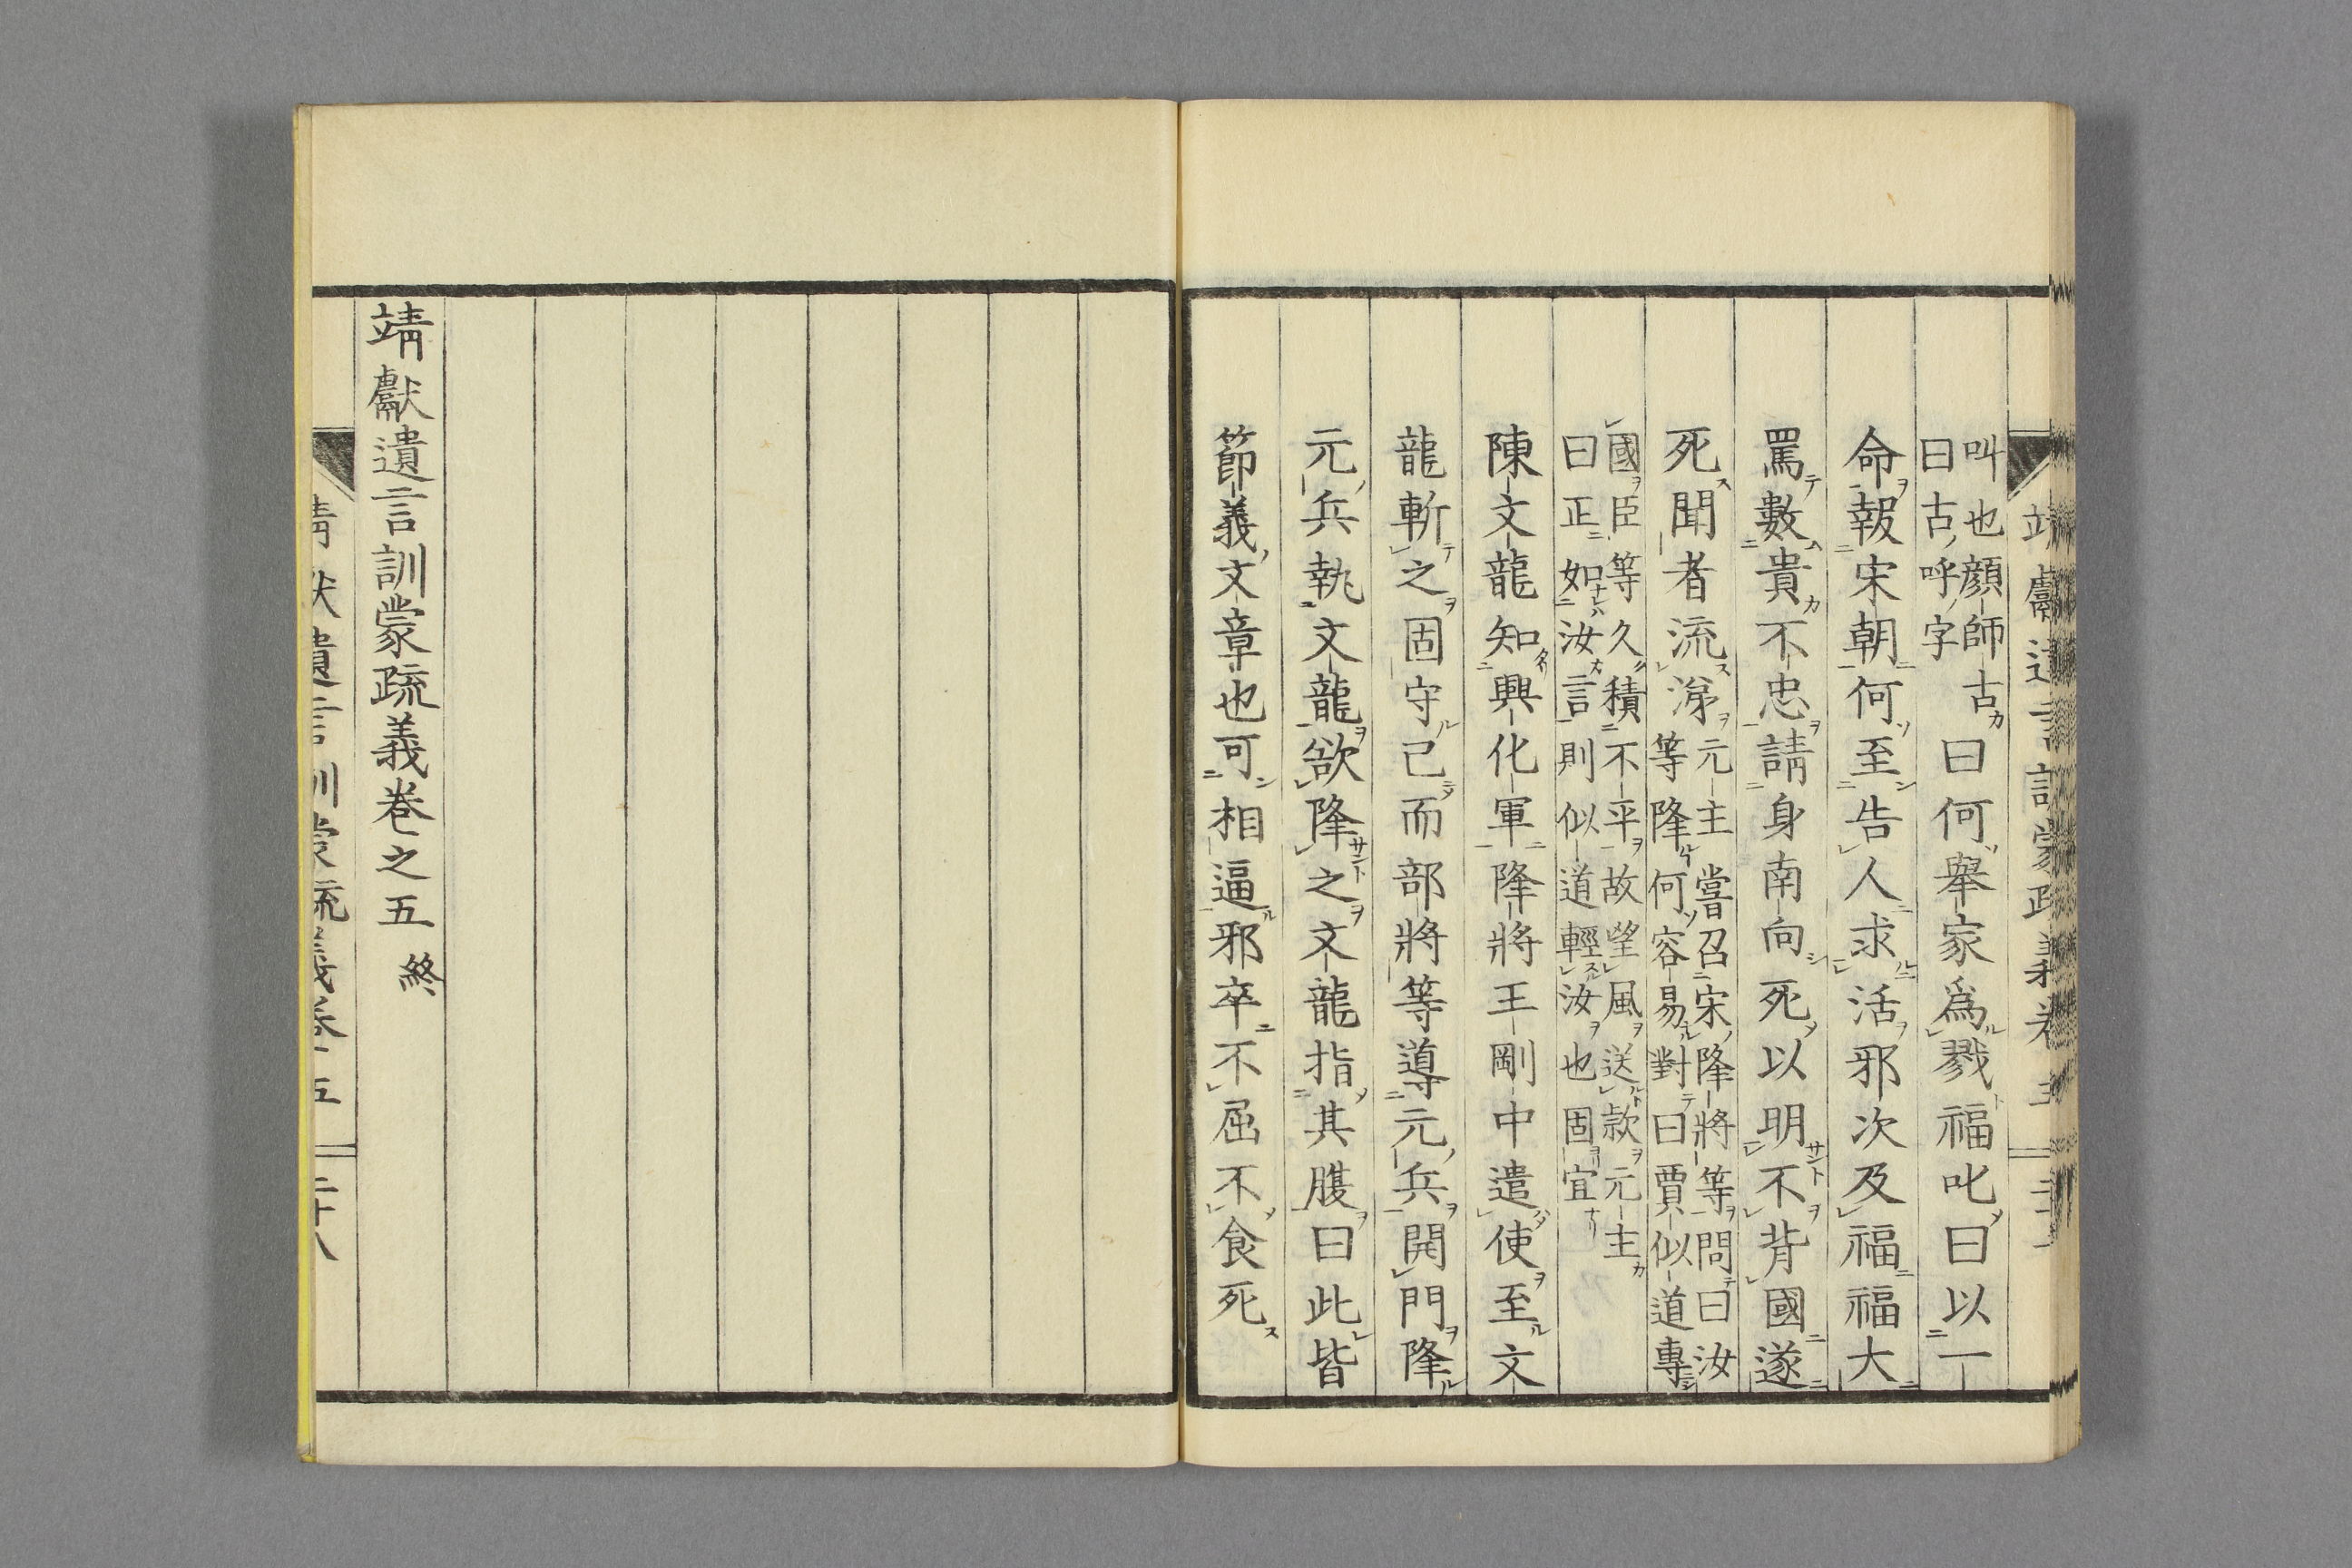 叫也顔師古曰何舉家爲戮福叱曰以一
曰古呼字
命報宋朝何至告人求活邪次及福福大
罵數貴不忠請身南向死以明不背國遂
死聞者流涕元主嘗召宋降將等問曰汝
等降何容易對曰賈似道專
國臣等久積不平故望風送款元主
曰正如汝言則似道輕汝也固宜
陳文龍知興化軍降將王剛中遣使至文
龍斬之固守已而部將等導元兵開門降
元兵執文龍欲降之文龍指其腹曰此皆
節義文章也可相逼邪卒不屈不食死
靖獻遺言訓蒙疏義巻之五 終